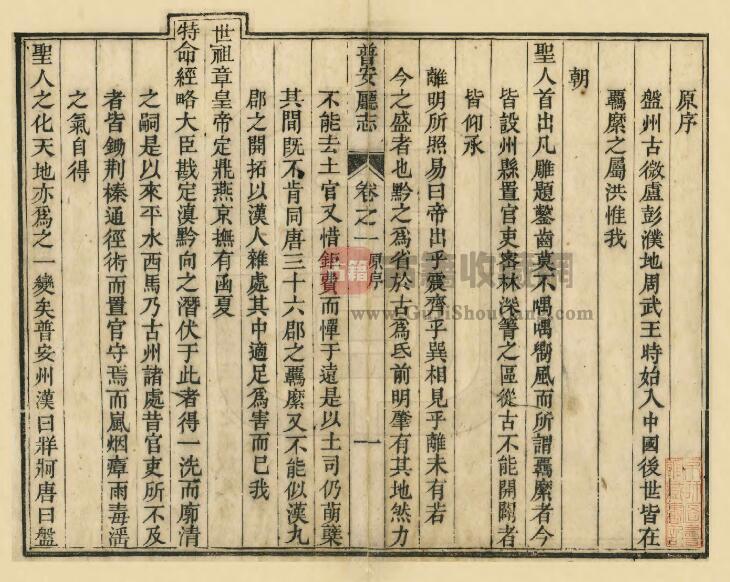 原序
盤州古微盧彭濮地周武王時始入中國後世皆在
羈縻之屬洪惟我
朝
聖人首出凡雕題鑿齒莫不喁喁嚮風而所謂羈縻者今
皆設州縣置官吏密林深箐之區從古不能開闢者
皆仰承
離明所照易曰帝出乎震齊乎巽相見乎離未有若
今之盛者也黔之為省於古為氐前明肇有其地然力
普安廳志 卷之一 原序 一
不能去土官又惜鉅費而憚于遠是以土司仍萌櫱
其間既不肯同唐三十六郡之羈縻又不能似漢九
郡之開拓以漢人雜處其中適足為害而已我
世祖章皇帝定鼎燕京撫有函夏
特命經略大臣戡定滇黔向之潛伏于此者得一洗而廓清
之嗣是以來平水西馬乃古州諸處昔官吏所不及
者皆鋤荆榛通徑術而置官守焉而嵐烟瘴雨毒滛
之氣自得
聖人之化天地亦為之一變矣普安州漢曰牂牁唐曰盤
古籍收藏網
www.GuJiShouCang.com